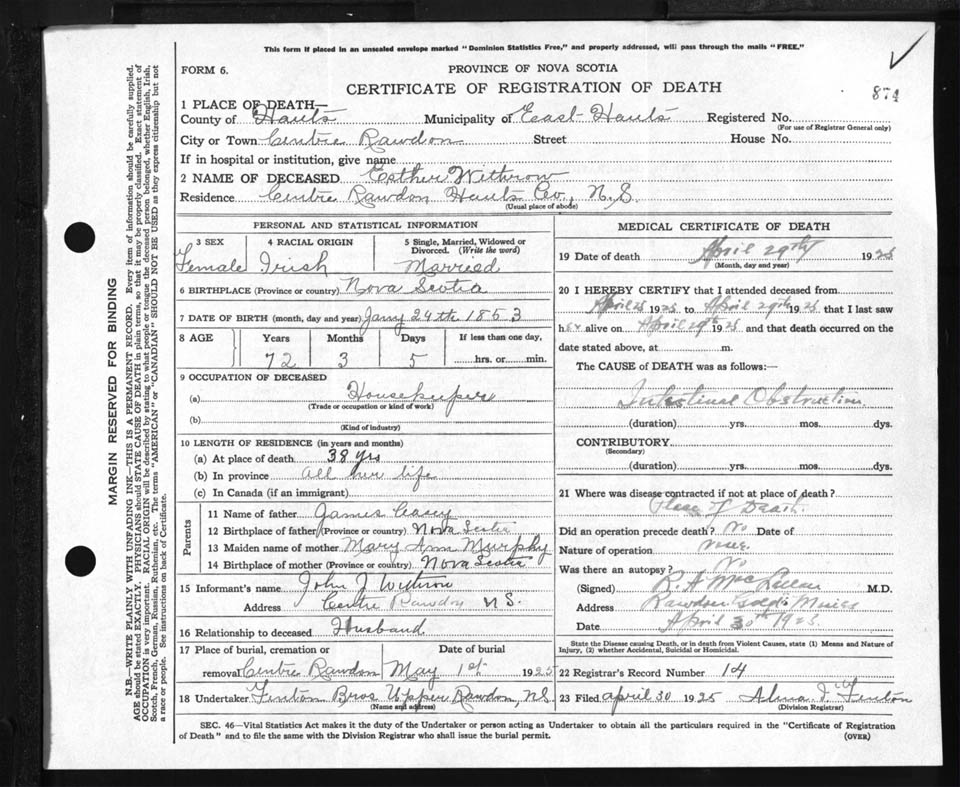 This form if placed in an unsealed envelope marked "Dominion Statistics Free," and properly addressed, will pass through the mails "FREE."
FORM 6.
PROVINCE OF NOVA SCOTIA
CERTIFICATE OF REGISTRATION OF DEATH
874
1 PLACE OF DEATH—
County of Hants Municipality of East Hants Registered No.
(For use of Registrar General only)
City or Town Centre Rawdon Street House No.
If in hospital or institution, give name
2 NAME OF DECEASED Esther Withrow
Residence Centre Rawdon Hants Co., N.S.
(Usual place of abode)
PERSONAL AND STATISTICAL INFORMATION
3 SEX 4 RACIAL ORIGIN 5 Single, Married, Widowed or Divorced. (Write the word)
Female Irish Married
6 BIRTHPLACE (Province or country) Nova Scotia
7 DATE OF BIRTH (month, day and year) Jany 24th 1853
8 AGE Years Months Days If less than one day,
72 3 5 hrs. or min.
9 OCCUPATION OF DECEASED
(a) Housekeeper
(Trade or occupation or kind of work)
(b)
(Kind of industry)
10 LENGTH OF RESIDENCE (in years and months)
(a) At place of death 38 yrs
(b) In province all her life
(c) In Canada (if an immigrant)
Parents
11 Name of father James Casey
12 Birthplace of father (Province or country) Nova Scotia
13 Maiden name of mother Mary Ann Murphy
14 Birthplace of mother (Province or country) Nova Scotia
15 Informant's name John J Withrow
Address Centre Rawdon N S.
16 Relationship to deceased Husband
17 Place of burial, cremation or removal Date of burial
Centre Rawdon May 1st 1925
18 Undertaker Fenton Bros Upper Rawdon, N.S.
(Name and address)
MEDICAL CERTIFICATE OF DEATH
19 Date of death April 29th 1925
(Month, day and year)
20 I HEREBY CERTIFY that I attended deceased from
April 25 1925 to April 29th 1925 that I last saw
her alive on April 29th 1925 and that death occurred on the
date stated above, at m.
The CAUSE of DEATH was as follows:—
Intestinal Obstruction
(duration) yrs. mos. dys.
CONTRIBUTORY
(Secondary)
(duration) yrs. mos. dys.
21 Where was disease contracted if not at place of death?
Place of Death
Did an operation precede death? No Date of
Nature of operation
Was there an autopsy? No
(Signed) R. A MacLellan M.D.
Address Rawdon Gold Mines
Date April 30th 1925
State the Disease causing Death, or in death from Violent Causes, state (1) Means and Nature of
Injury, (2) whether Accidental, Suicidal or Homicidal.
22 Registrar's Record Number 14
23 Filed april 30 1925 Alma I. Fenton
(Division Registrar)
SEC. 46—Vital Statistics Act makes it the duty of the Undertaker or person acting as Undertaker to obtain all the particulars required in the "Certificate of Registration
of Death" and to file the same with the Division Registrar who shall issue the burial permit. (OVER)
MARGIN RESERVED FOR BINDING
N.B.—WRITE PLAINLY WITH UNFADING INK—THIS IS A PERMANENT RECORD. Every item of information should be carefully supplied.
AGE should be stated EXACTLY. PHYSICIANS should STATE CAUSE OF DEATH in plain terms, so that it may be properly classified. Exact statement of
OCCUPATION is very important. RACIAL ORIGIN will be described by stating to what people or tongue the deceased person belonged, whether English, Irish,
Scotch, French, German, Russian, Ruthenian, etc. The terms "AMERICAN" or "CANADIAN" SHOULD NOT BE USED as they express citizenship but not
a race or people. See instructions on back of Certificate.